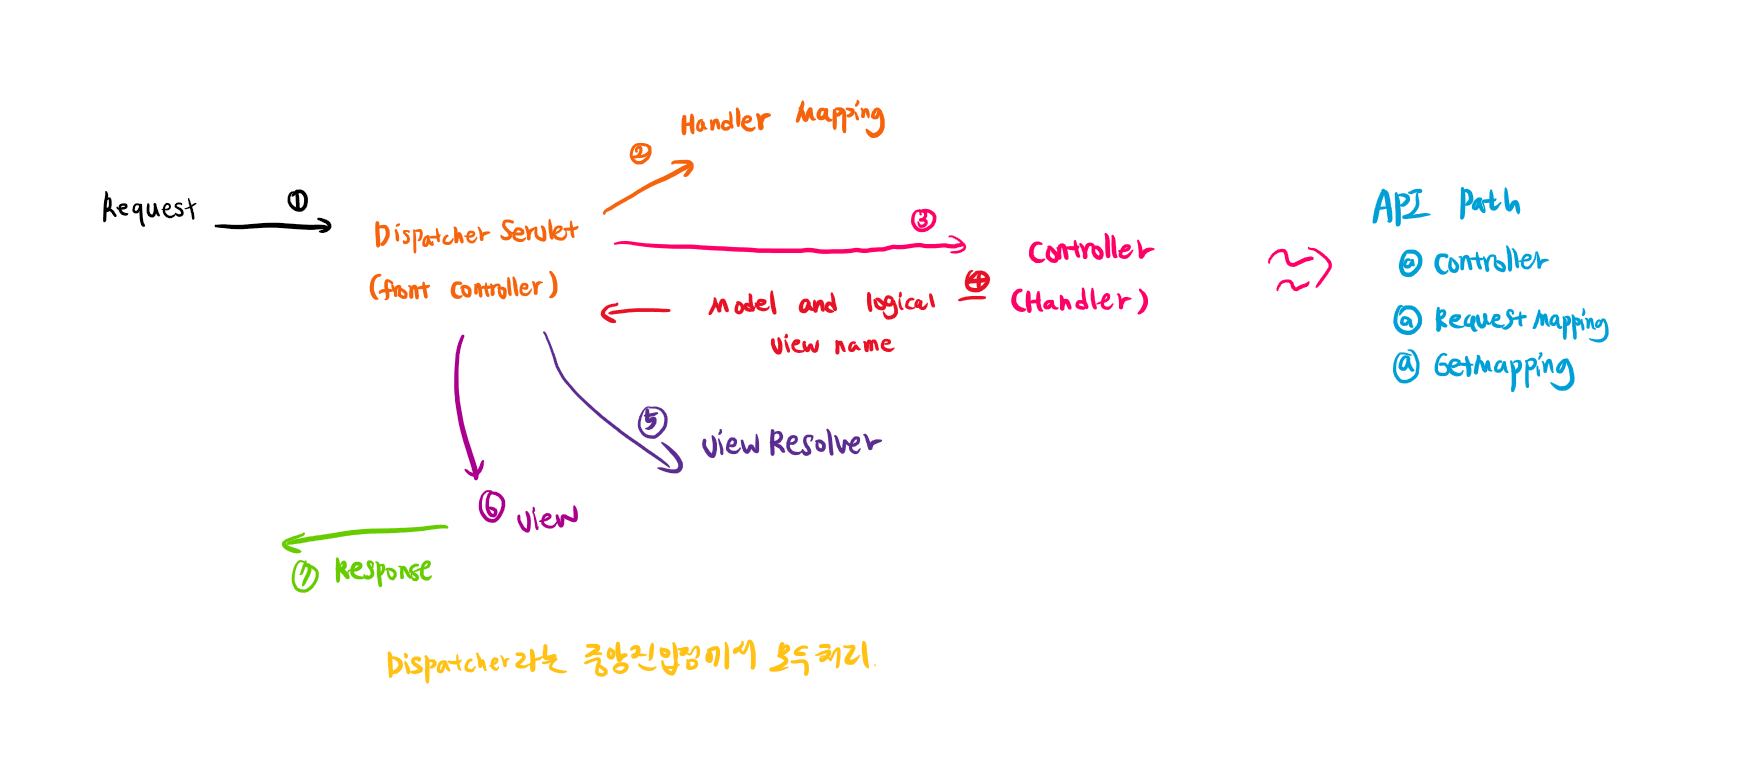 Handler Mapping
②
Request
①
Dispatcher Servlet
(front controller)
③
Controller
(Handler)
④
Model and logical
View name
API Path
@ Controller
@ RequestMapping
@ GetMapping
⑤
View Resolver
⑥ View
⑦ Response
Dispatcher라는 중앙진입점에서 모두처리.